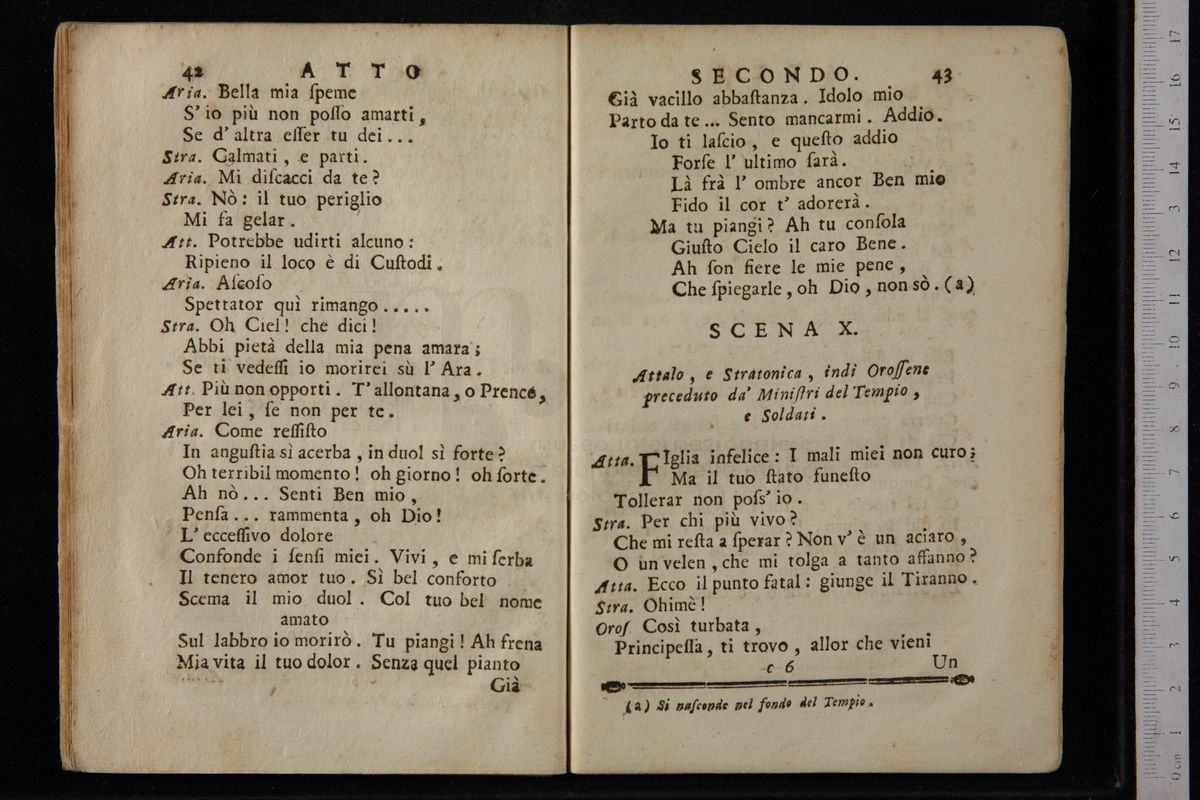 42 ATTO
Aria. Bella mia ſpeme
S' io più non poſſo amarti,
Se d' altra eſſer tu dei...
Stra. Calmati, e parti.
Aria. Mi diſcacci da te?
Stra. Nò: il tuo periglio
Mi fa gelar.
Att. Potrebbe udirti alcuno:
Ripieno il loco è di Cuſtodi.
Aria. Aſcoſo
Spettator quì rimango.....
Stra. Oh Ciel! che dici!
Abbi pietà della mia pena amara;
Se ti vedeſſi io morirei sù l' Ara.
Att. Più non opporti. T' allontana, o Prence,
Per lei, ſe non per te.
Aria. Come reſſiſto
In anguſtia sì acerba, in duol sì forte?
Oh terribil momento! oh giorno! oh ſorte.
Ah nò... Senti Ben mio,
Penſa... rammenta, oh Dio!
L' ecceſſivo dolore
Confonde i ſenſi miei. Vivi, e mi ſerba
Il tenero amor tuo. Sì bel conforto
Scema il mio duol. Col tuo bel nome
amato
Sul labbro io morirò. Tu piangi! Ah frena
Mia vita il tuo dolor. Senza quel pianto
Già
SECONDO. 43
Già vacillo abbaſtanza. Idolo mio
Parto da te... Sento mancarmi. Addio.
Io ti laſcio, e queſto addio
Forſe l' ultimo ſarà.
Là frà l' ombre ancor Ben mio
Fido il cor t' adorerà.
Ma tu piangi? Ah tu conſola
Giuſto Cielo il caro Bene.
Ah ſon fiere le mie pene,
Che ſpiegarle, oh Dio, non sò. (a)
SCENA X.
Attalo, e Stratonica, indi Oroſſene
preceduto da' Miniſtri del Tempio,
e Soldati.
Atta. FIglia infelice: I mali miei non curo;
Ma il tuo ſtato funeſto
Tollerar non poſs' io.
Stra. Per chi più vivo?
Che mi reſta a ſperar? Non v' è un aciaro,
O un velen, che mi tolga a tanto affanno?
Atta. Ecco il punto fatal: giunge il Tiranno.
Stra. Ohimè!
Oroſ Così turbata,
Principeſſa, ti trovo, allor che vieni
c 6 Un
(a) Si naſconde nel fondo del Tempio.
0 cm 1 2 3 4 5 6 7 8 9 10 11 12 13 14 15 16 17